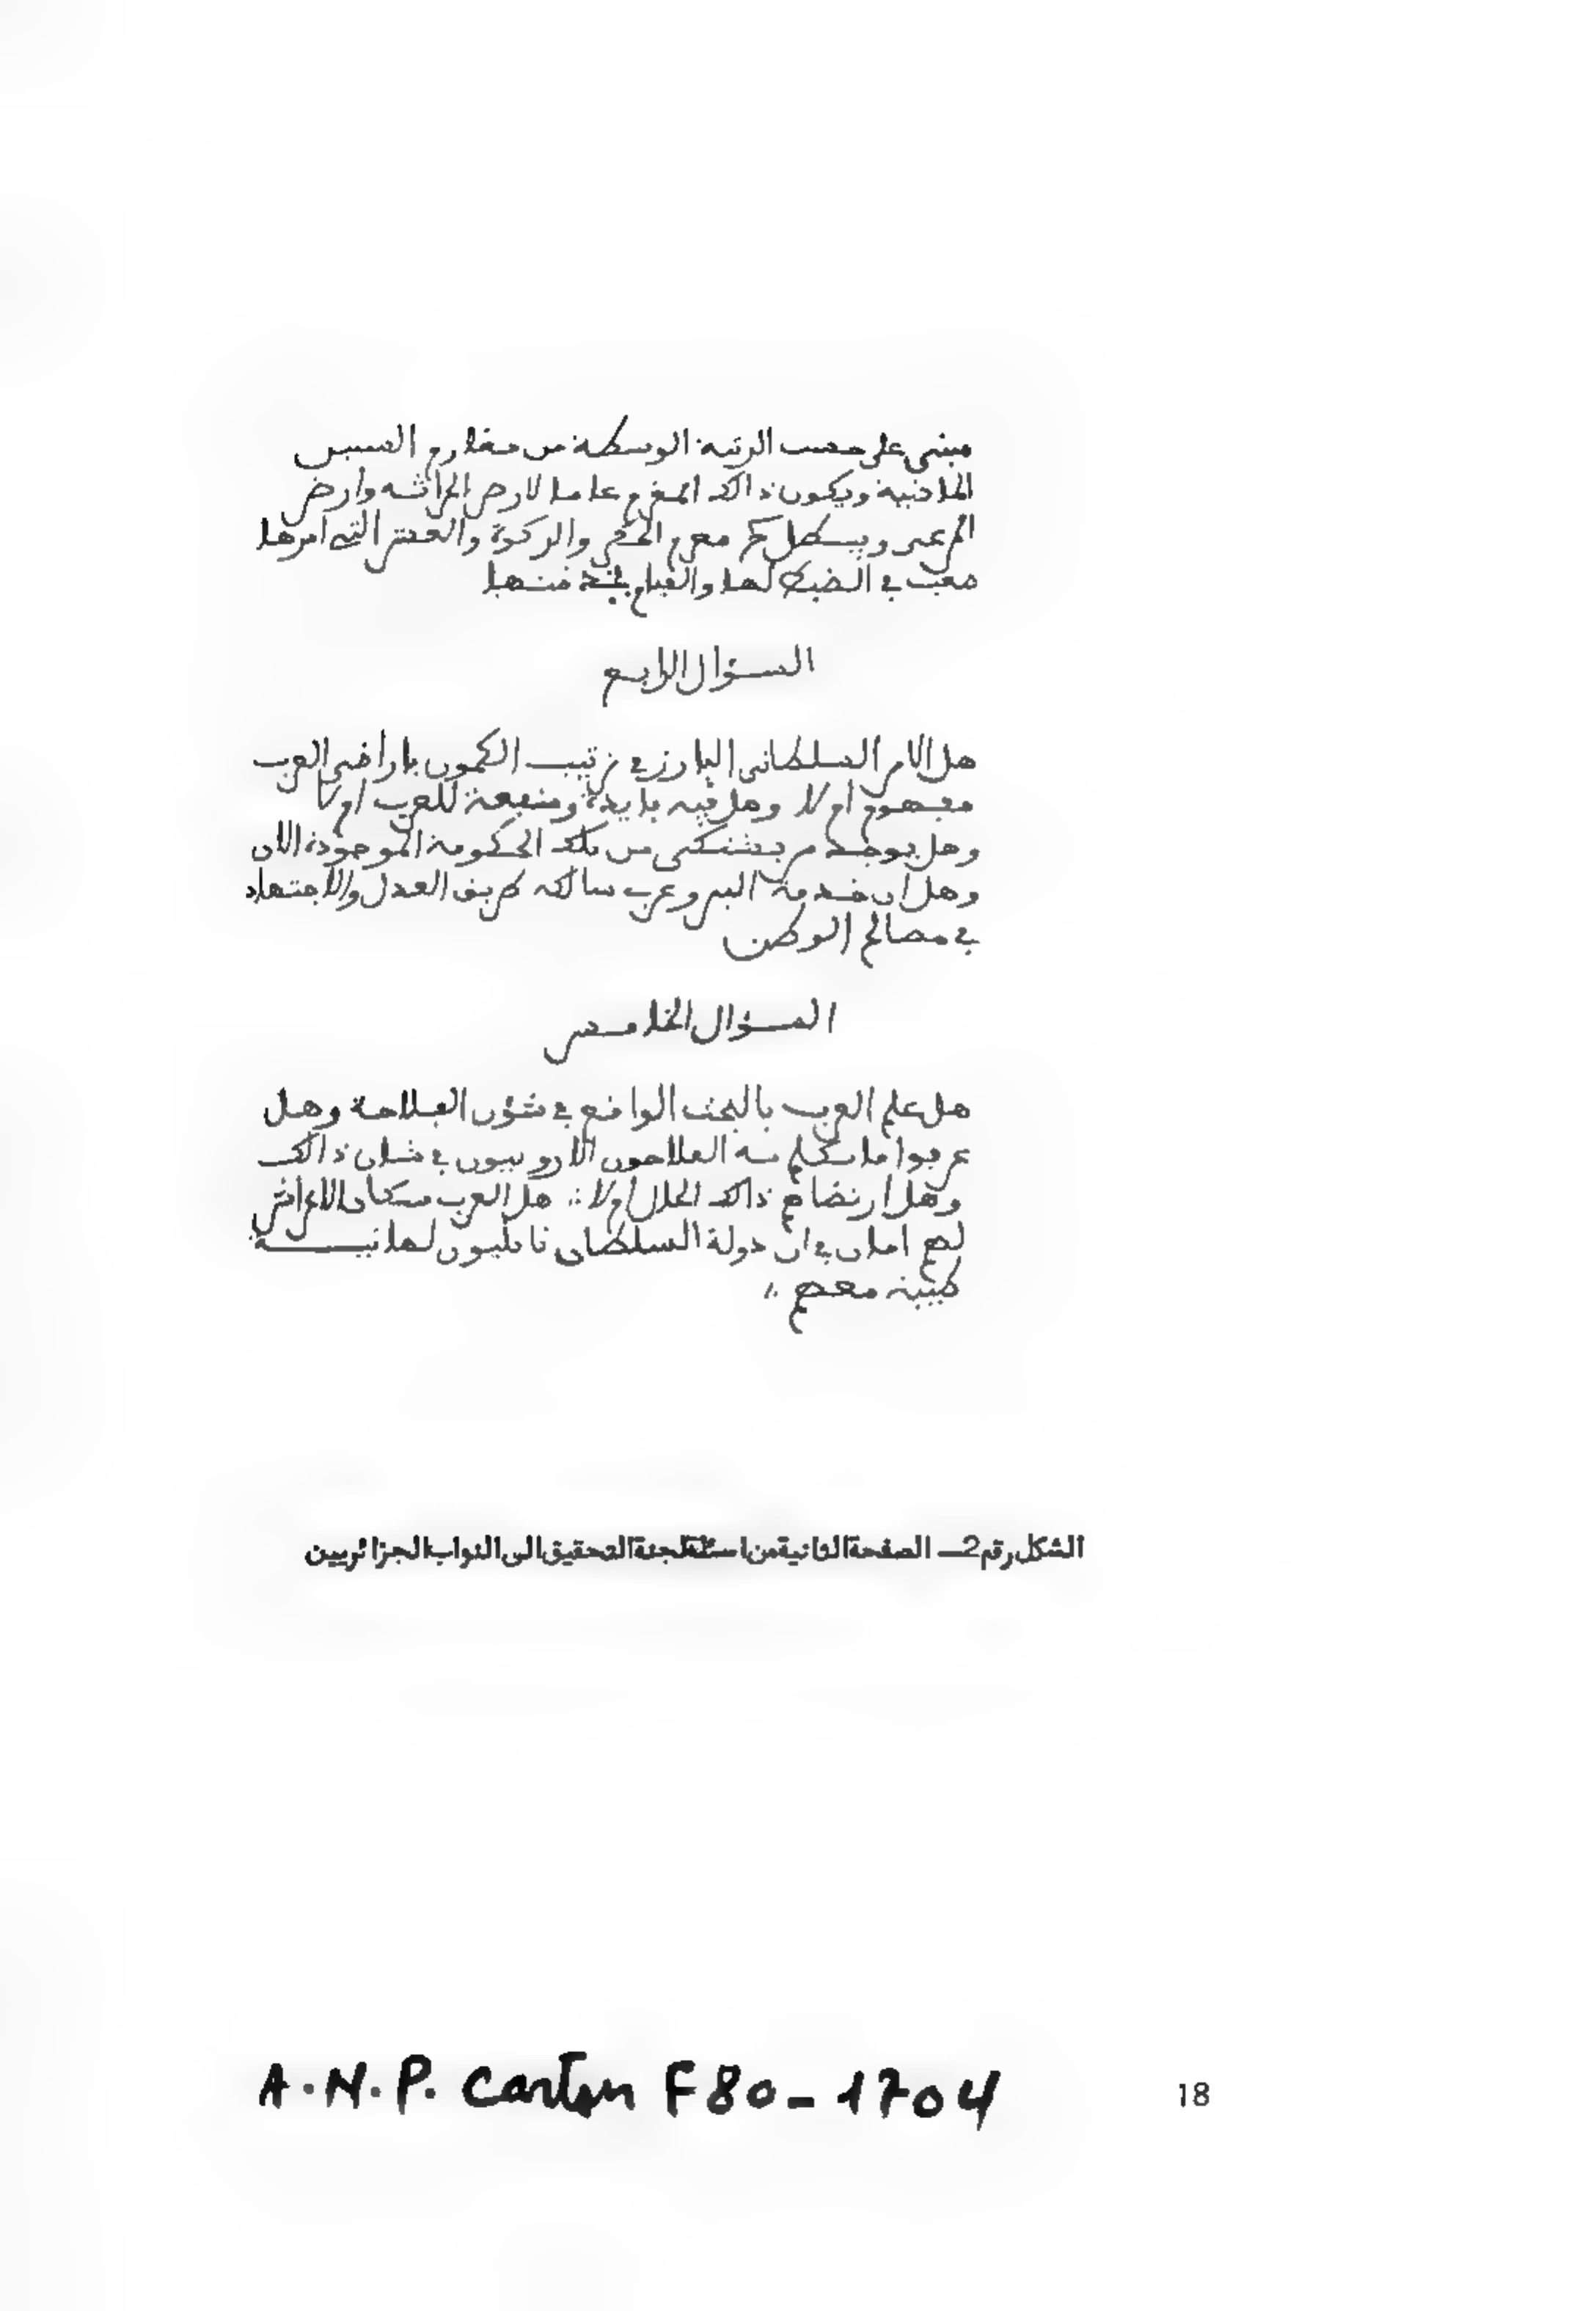 مبني على حسب الرتبة الوسطة من مغارم السنين
الماضية ويكون ذالك المغرم عاما لارض الحراثة وارض
المرعى ويبطل حكم مغرم الحكر والزكوة والعشر التي امرها
صعب في الضبط لها والقيام بخدمتها
السؤال الرابع
هل الامر السلطاني البارز في ترتيب الكمون باراضي العرب
مفهوم ام لا وهل فيه فايدة ومنفعة للعرب ام لا
وهل يوجد من يشتكى من تلك الحكومة الموجودة الان
وهل ان خدمة البيروعرب سالكة طريق العدل والاجتهاد
في مصالح الوطن
السؤال الخامس
هل علم العرب بالبحث الواقع في شؤن الفلاحة وهل
عرفوا ما تكلم به الفلاحون الاروبيون في شان ذالك
وهل ارتضاهم ذاك الحال ام لا ؛ هل العرب سكان الاعراش
لهم امان في ان دولة السلطان نابليون لها نيـــة
طيبة معهم ؛
الشكل رقم 2 ــ الصفحة الثانية من اسئلة لجنة التحقيق الى النواب الجزائريين
A.N.P. Carton F80-1704
18